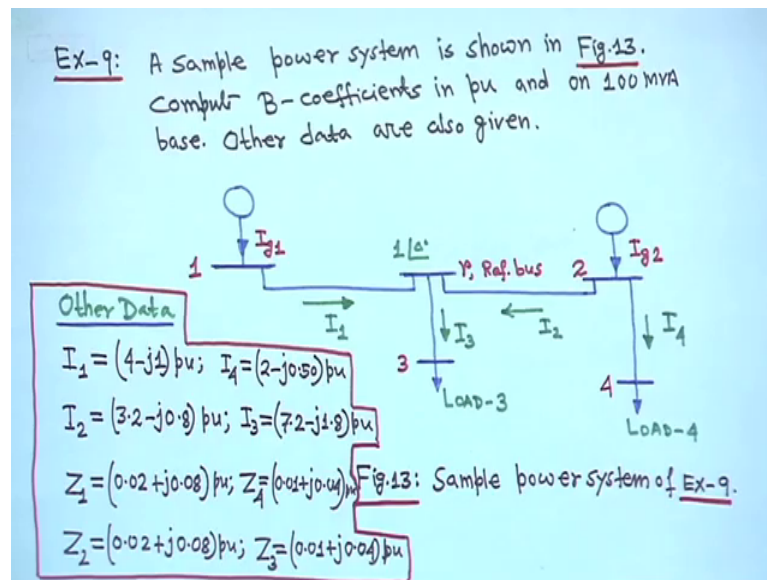 Ex-9: A sample power system is shown in Fig.13.
Comput B-coefficients in pu and on 100 MVA
base. Other data are also given.
Ig1
1
1∠0°
r, Ref. bus
2
Ig2
I1
I3
I2
I4
3
LOAD-3
4
LOAD-4
Other Data
I1 = (4-j1) pu; I4 = (2-j0.50) pu
I2 = (3.2-j0.8) pu; I3 = (7.2-j1.8) pu
Z1 = (0.02+j0.08) pu; Z4 = (0.01+j0.04) pu
Z2 = (0.02+j0.08) pu; Z3 = (0.01+j0.04) pu
Fig.13: Sample power system of Ex-9.